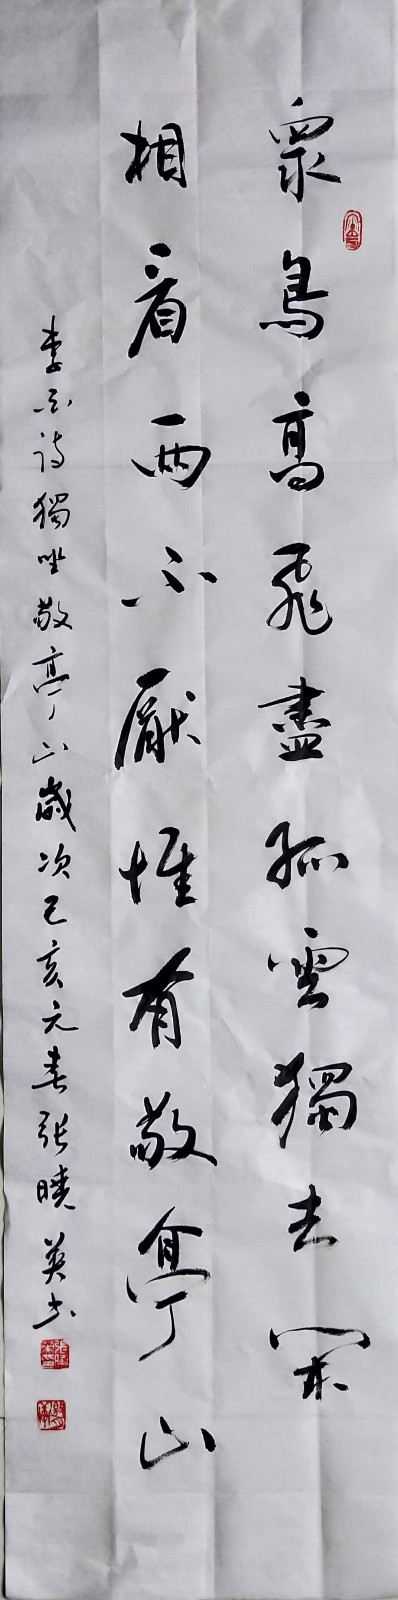 眾鳥高飛盡孤雲獨去閑
相看兩不厭惟有敬亭山
李白詩獨坐敬亭山歲次己亥元春張曉英书